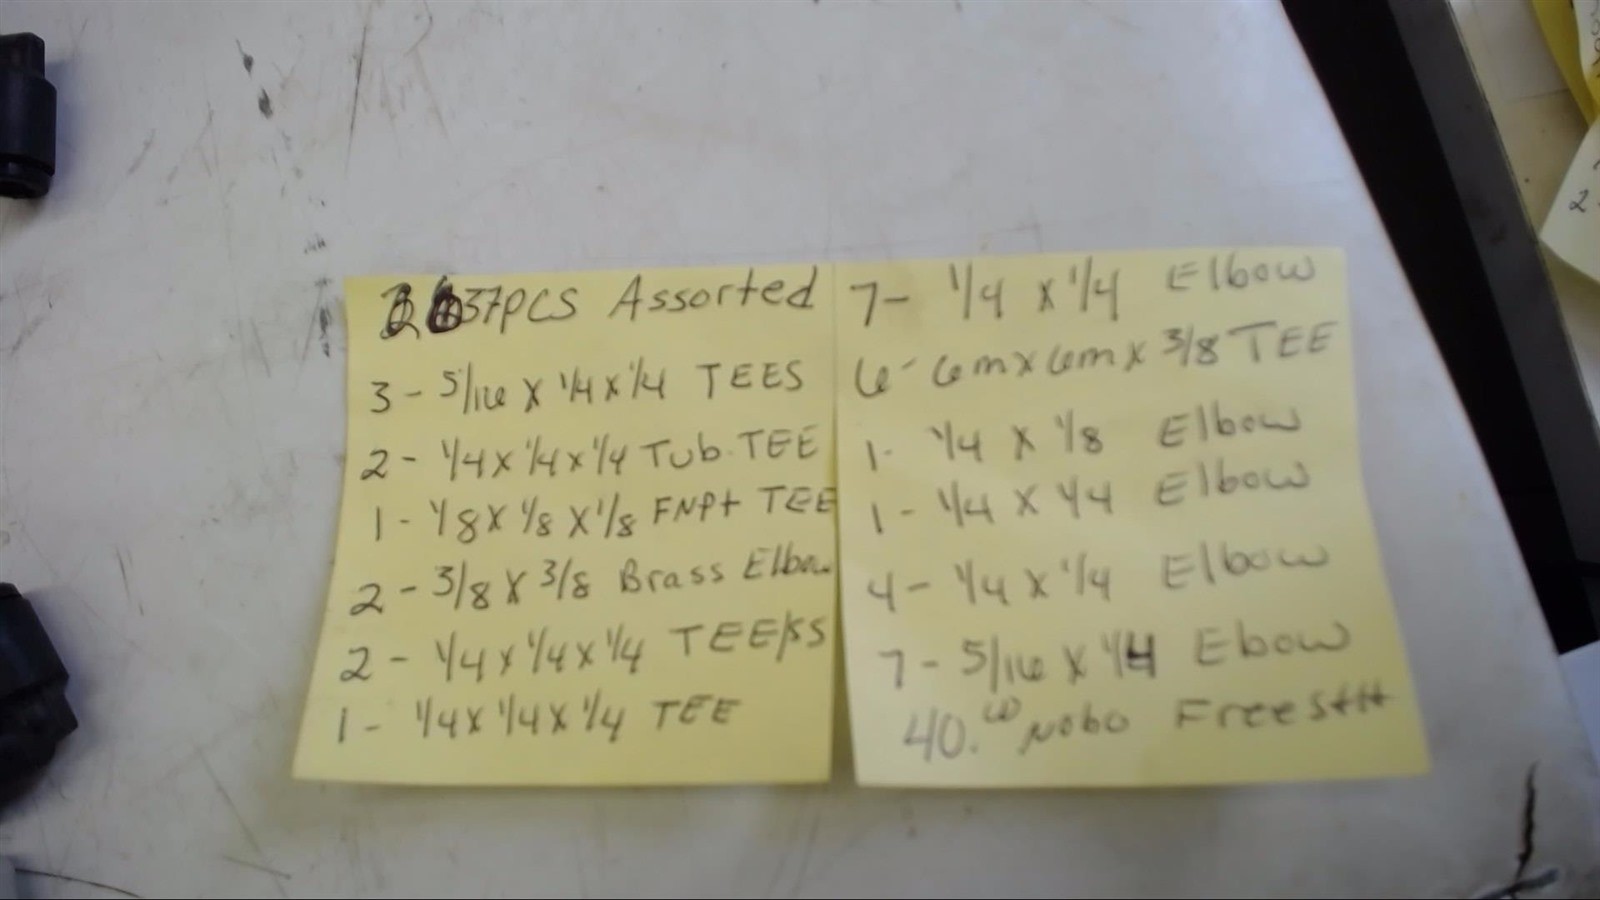 37PCS Assorted
3 - 5/16 x 1/4 x 1/4 TEES
2 - 1/4 x 1/4 x 1/4 Tub. TEE
1 - 1/8 x 1/8 x 1/8 FNPt TEE
2 - 3/8 x 3/8 Brass Elbow
2 - 1/4 x 1/4 x 1/4 TEE/SS
1 - 1/4 x 1/4 x 1/4 TEE
7 - 1/4 x 1/4 Elbow
6 - 6m x 6m x 3/8 TEE
1 - 1/4 x 1/8 Elbow
1 - 1/4 x 1/4 Elbow
4 - 1/4 x 1/4 Elbow
7 - 5/16 x 1/4 Ebow
40. Nobo Free
2